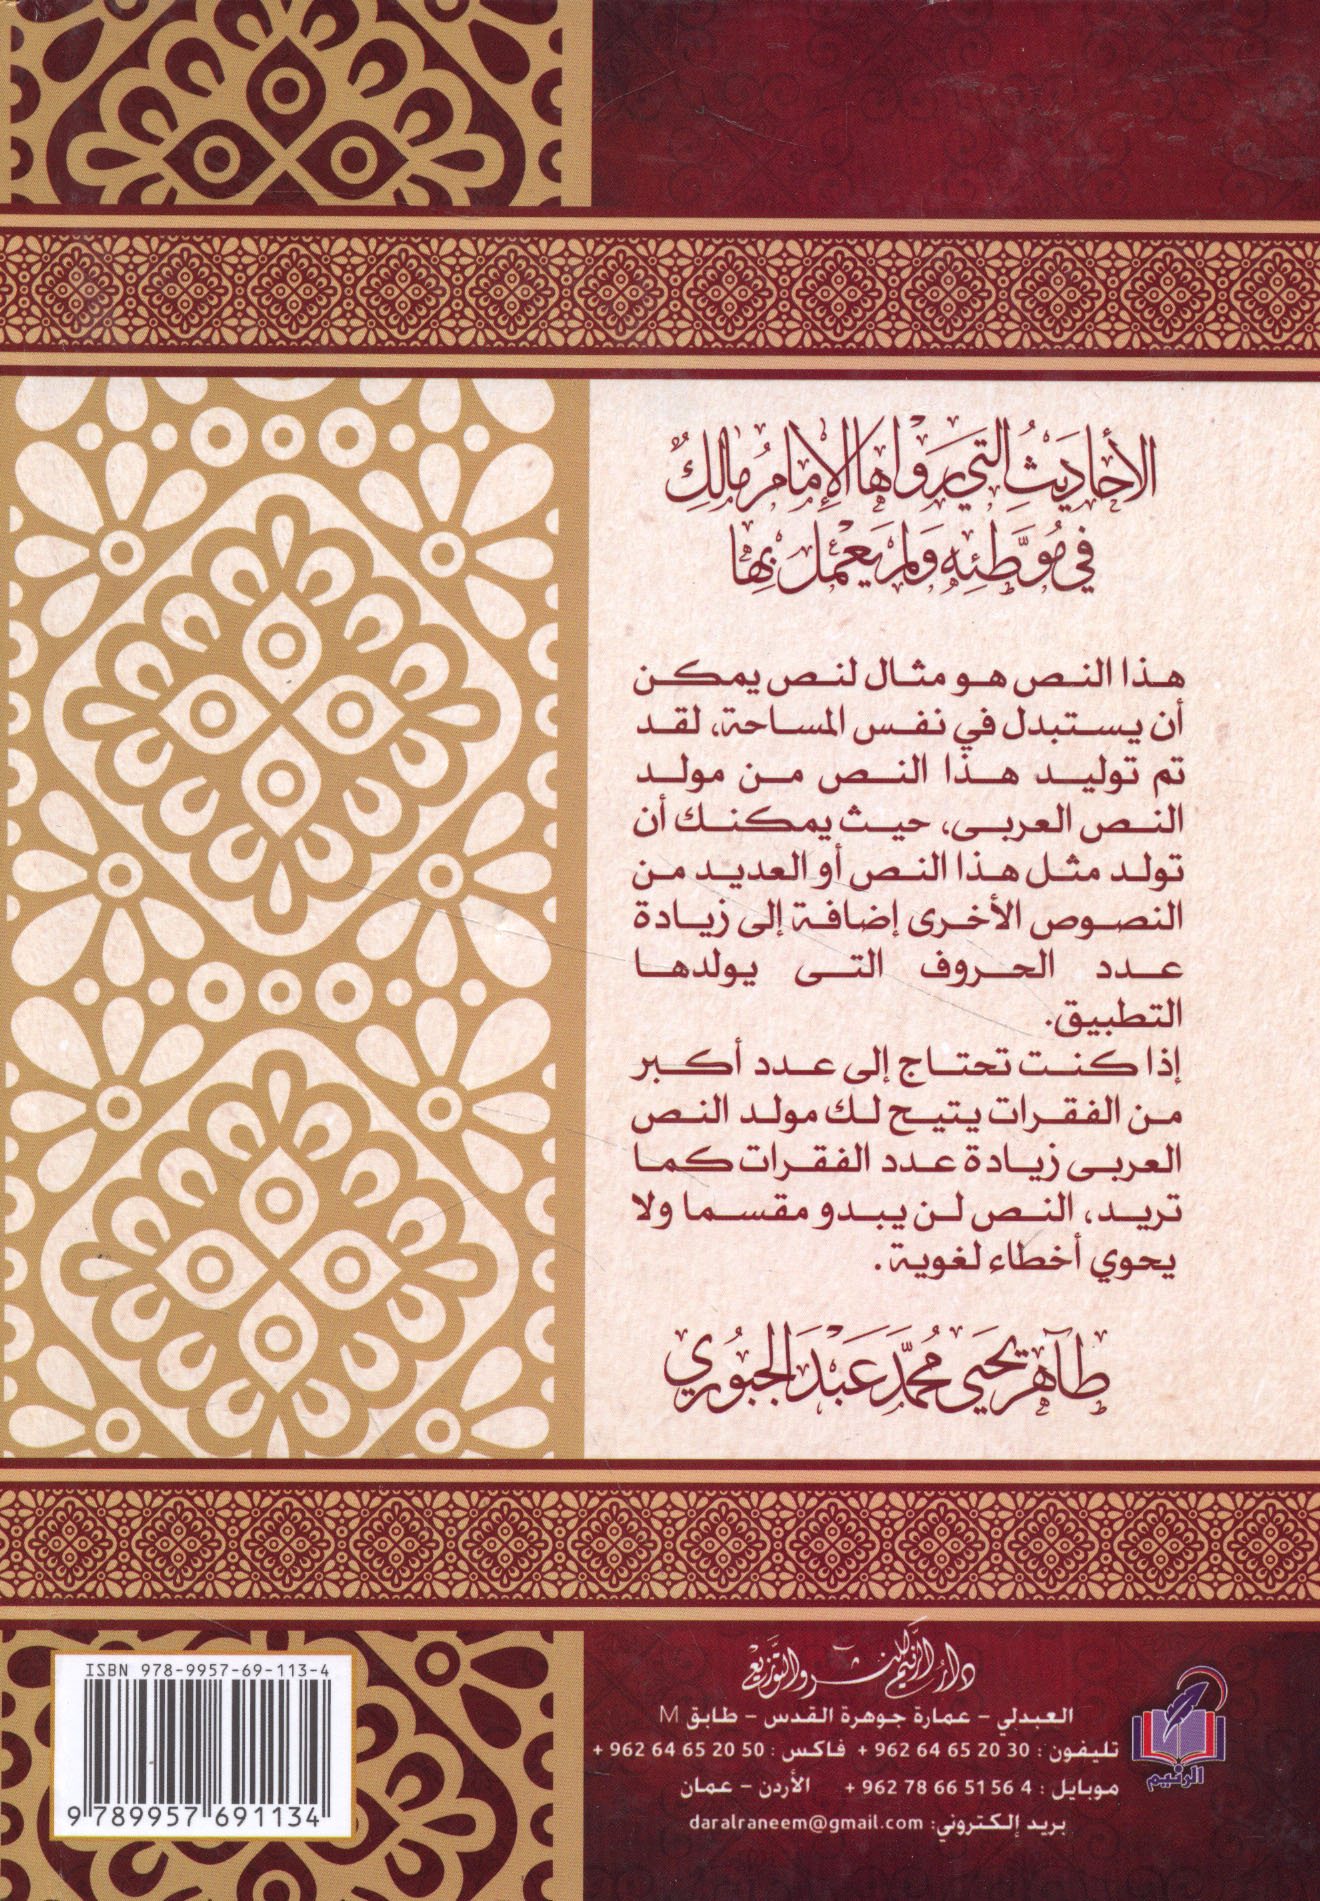 الأحاديثُ التي رواها الإمامُ مالكٌ
في مُوَطَّئِهِ وَلَم يَعْمَل بِها
هذا النص هو مثال لنص يمكن
أن يستبدل في نفس المساحة، لقد
تم توليد هذا النص من مولد
النص العربى، حيث يمكنك أن
تولد مثل هذا النص أو العديد من
النصوص الأخرى إضافة إلى زيادة
عدد الحروف التى يولدها
التطبيق.
إذا كنت تحتاج إلى عدد أكبر
من الفقرات يتيح لك مولد النص
العربى زيادة عدد الفقرات كما
تريد، النص لن يبدو مقسما ولا
يحوي أخطاء لغوية .
طاهر يحيى محمَّد عَبْد الجبُوري
دار الرنيم للنشر والتوزيع
العبدلي - عمارة جوهرة القدس - طابق M
تليفون : 30 20 65 64 962 + فاكس : 50 20 65 64 962 +
موبايل : 4 56 51 66 78 962 + الأردن - عمان
بريد إلكتروني: daralraneem@gmail.com
الرنيم
ISBN 978-9957-69-113-4
9 789957 691134